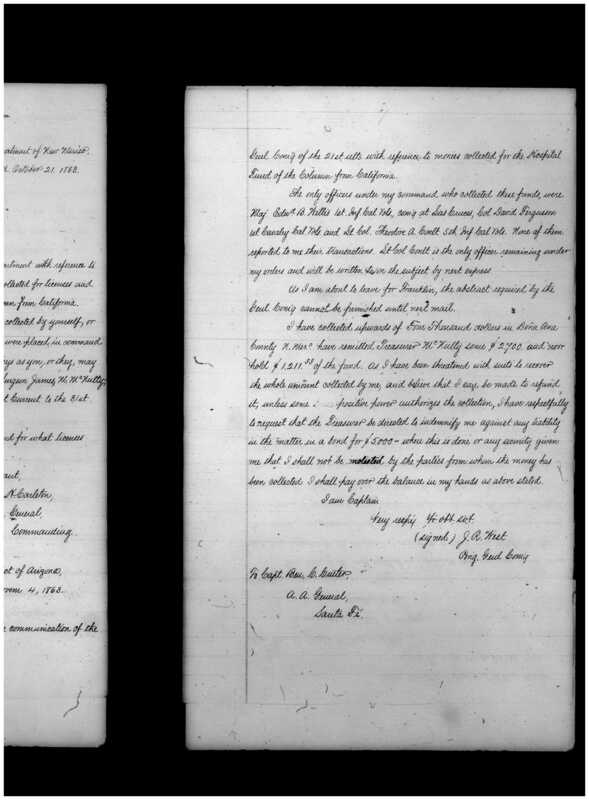 artment of New Mexico.
October 21. 1863.
ntment with reference to
ollected for licenses and
mn from California.
collected by yourself, or
were placed, in command
ys as you, or they, may
Surgeon James M. McNulty;
t Current to the 31st.
nd for what licenses
ant,
H. Carleton,
General,
Commanding.
ct of Arizona,
4, 1863.
e communication of the
Genl Com'g of the 21st ulto with reference to monies collected for the Hospital
Fund of the Column from California.
The only officers under my command who collected these funds, were
Maj Edwd B. Willis 1st. Inf Cal Vols, com'g at Las Cruces, Col David Fergusson
1st Cavalry Cal Vols and Lt Col. Theodore A. Coult 5th Inf Cal Vols. None of them
reported to me their transactions. Lt Col Coult is the only officer remaining under
my orders and will be written to on the subject by next express
As I am about to leave for Franklin, the abstract required by the
Genl Com'g cannot be furnished until next mail.
I have collected upwards of Four Thousand dollars in Dona Ana
County N. Mex. have remitted Treasurer McNulty some $2700, and now
hold $1,211.55 of the fund. As I have been threatened with suits to recover
the whole amount collected by me, and believe that I may be made to refund
it, unless some positive power authorizes the collection, I have respectfully
to request that the Treasurer be directed to indemnify me against any liability
in the matter in a bond for $5000 – when this is done or any security given
me that I shall not be molested, by the parties from whom the money has
been collected I shall pay over the balance in my hands as above stated.
I am Captain
Very resp'y Yr obt svt.
(signed,) J. R. West
Brig. Genl Comg
To Capt. Ben. C. Cutler,
A. A. General,
Santa Fé.